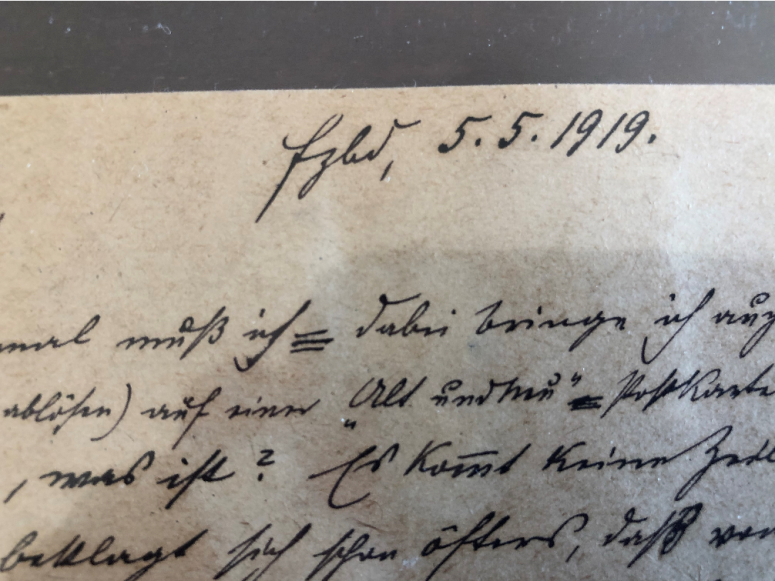 5. 5. 1919.
mal muß ich = dabei bringe ich
ablösen) auf einer „Alt und Neu" = Postkarte
, was ist? Es kom̅t keine Zeil
beklagt sich schon öfters, daß von